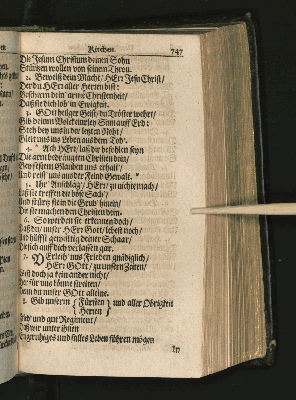 Kirchen. 747
Die Jesum Christum deinen Sohn
Stürtzen wollen von seinem Thron.
2. Beweiß dein Macht/ HErr Jesu Christ/
Der du HErr aller Herren bist:
Beschirm dein arme Christenheit/
Daß sie dich lob in Ewigkeit.
3. GOtt heilger Geist/ du Tröster wehrt/
Gib deinm Volck einerley Sinn auff Erd:
Steh bey uns in der letzten Noht/
Gleit uns ins Leben aus dem Tod.
4. Ach HErr/ laß dir befohlen seyn
Die arm bedrängten Christen dein/
Bey festem Glauben uns erhalt/
Und reiß uns aus der Feind Gewalt.
5. Ihr Anschläg/ HErr/ zu nichte mach/
Laß sie treffen die böse Sach/
Und stürtz sie in die Grub hinein/
Die sie machen den Christen dein.
6. So werden sie erkennen doch/
Daß du/ unser HErr Gott/ lebest noch/
Und hilffst gewaltig deiner Schaar/
Die sich auff dich verlassen gar.
7. Verleih uns Frieden gnädiglich/
HErr GOtt/ zu unsern Zeiten/
Es ist doch ja kein ander nicht/
Der für uns könte streiten/
Denn du unser GOtt alleine.
8. Gib unserm { Fürsten / Herren } und aller Obrigkeit
Fried und gut Regiment/
Daß wir unter ihnen
Ein geruhiges und stilles Leben führen mögen
In